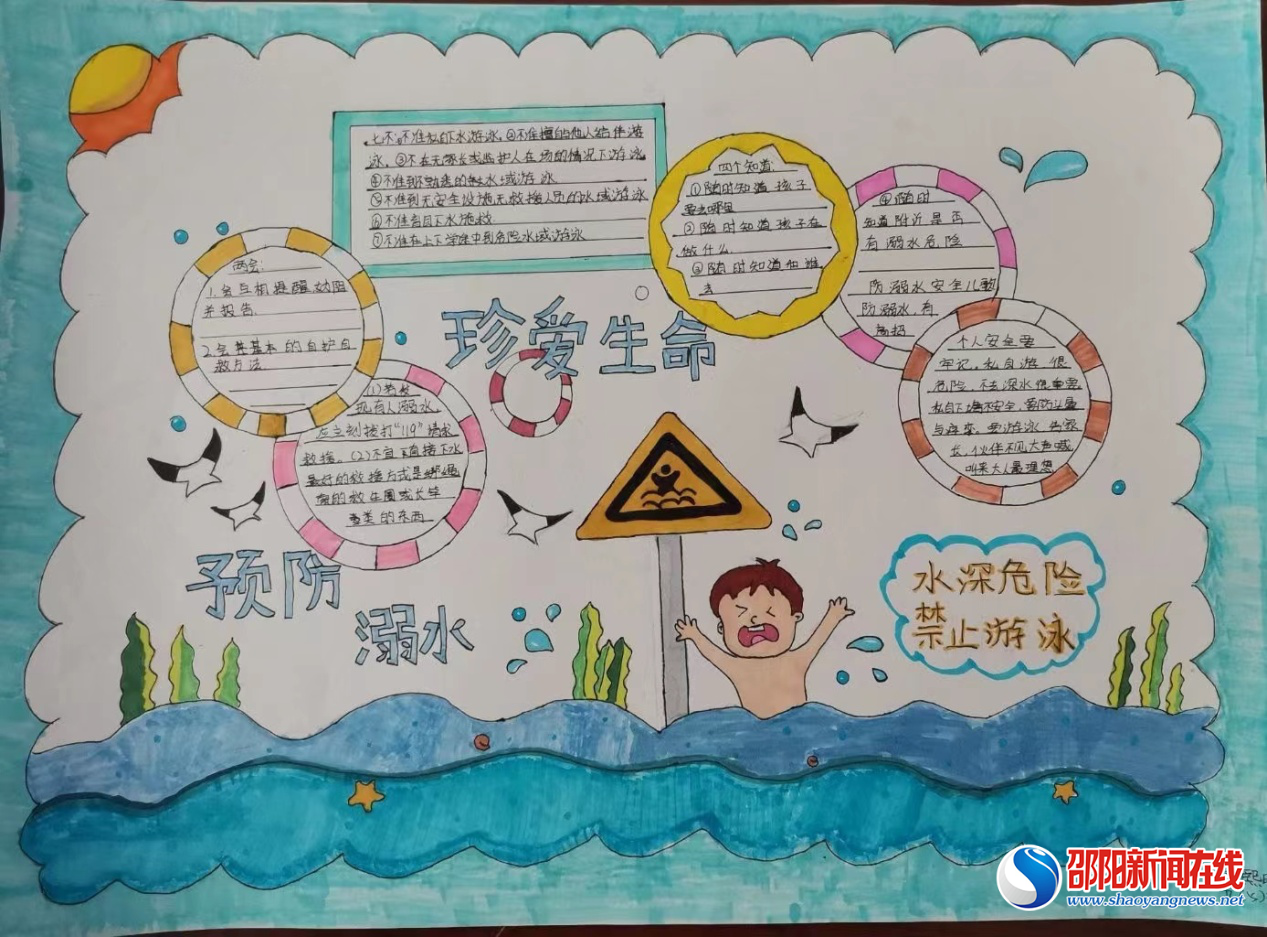 七不:不准私自下水游泳,②不准擅自与他人结伴游
泳,③不在无家长或监护人在场的情况下游泳
④不准到不熟悉的水域游泳
⑤不准到无安全设施无救援人员的水域游泳
⑥不准盲目下水施救
⑦不准在上下学途中到危险水域游泳
四个知道:
①随时知道孩子
要去哪里
②随时知道孩子在
做什么
③随时知道和谁
去
④随时
知道附近是否
有溺水危险
防溺水安全儿歌
防溺水,有
高招
个人安全要
牢记,私自游很
危险,不去深水很重要
私自下塘不安全,
伙伴不见大声喊
叫来大人最理想
两会:
1.会互机提醒劝阻
并报告.
2.会基基本的自护自
救方法.
现有人溺水,
应立刻拨打"119"请求
救援。(2)不直接下水
最好的救援方式是绑绳
索的救生圈或长竿
类的东西
珍爱生命
预防
溺水
水深危险
禁止游泳
邵阳新闻在线
www.shaoyangnews.net